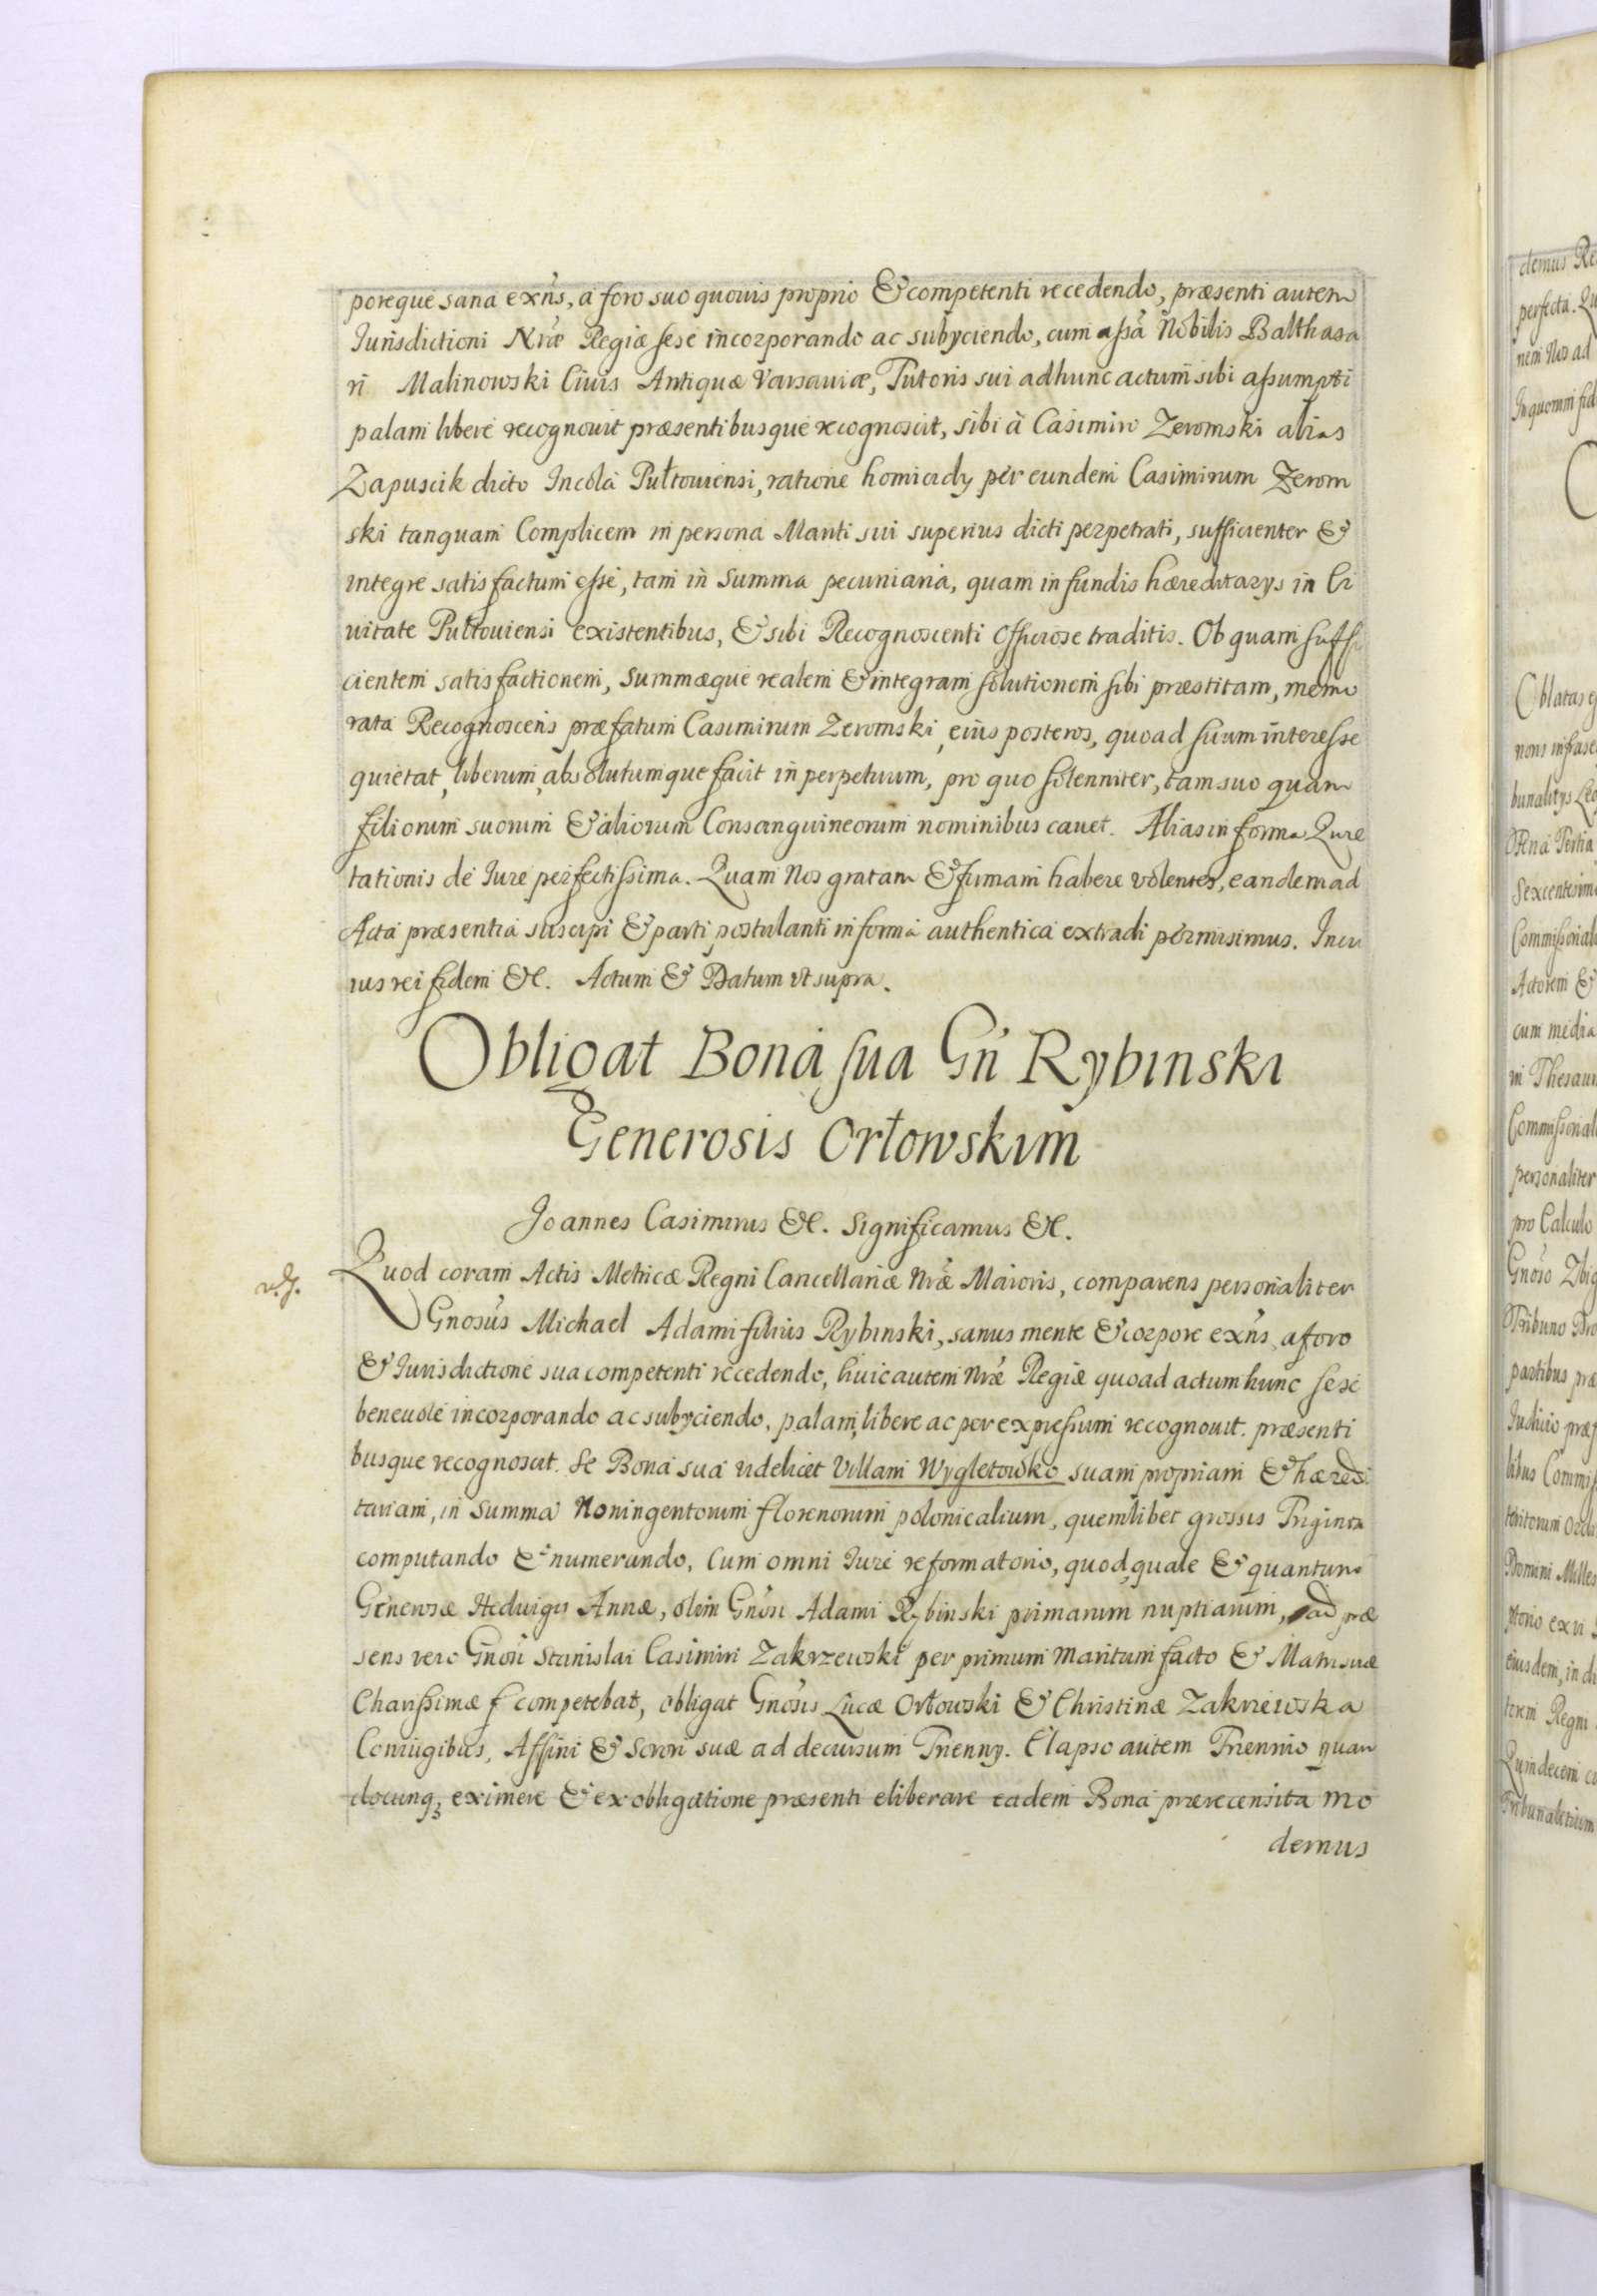 poreque sana exn̄s, a foro suo quouis proprio & competenti recedendo, præsenti autem
Jurisdictioni Nr̄æ Regiæ sese incorporando ac subyciendo, cum assā Nobilis Balthasa
ri Malinowski Ciuis Antiquæ Varsauiæ, Tutoris sui ad hunc actum sibi assumpti
palam libere recognouit præsentibusque recognoscit, sibi à Casimiro Zeromski alias
Zapuscik dicto Incola Pułtouiensi, ratione homicidy per eundem Casimirum Zerom
ski tanquam Complicem in persona Mariti sui superius dicti perpetrati, sufficienter &
integre satisfactum esse, tam in Summa pecuniaria, quam in fundis hæreditarys in Ci
uitate Pułtouiensi existentibus, & sibi Recognoscenti officiose traditis. Ob quam suffi
cientem satisfactionem, Summæque realem & integram solutionem sibi præstitam, memo
rata Recognoscens præfatum Casimirum Zeromski, eius posteros, quoad suum interesse
quietat, liberum, absolutumque facit in perpetuum, pro quo solenniter, tam suo quam
filiorum suorum & aliorum Consanguineorum nominibus cauet. Alias in forma Quie
tationis de Iure perfectissima. Quam Nos gratam & firmam habere volentes, eandem ad
Acta præsentia suscipi & parti postulanti in forma authentica extradi permisimus. In cu
ius rei fidem &c. Actum & Datum vt supra.
Obligat Bona sua Gn̄ Rybinski
Generosis Orłowskim
Joannes Casimirus &c. Significamus &c.
Quod coram Actis Metricæ Regni Cancellariæ Nr̄æ Maioris, comparens personaliter
Gnosus Michael Adami filius Rybinski, sanus mente & corpore exn̄s, a foro
& Jurisdictione sua competenti recedendo, huic autem Nr̄æ Regiæ quoad actum hunc sese
beneuole incorporando ac subyciendo, palam, libere ac per expressum recognouit. præsenti
busque recognoscit. Se Bona sua videlicet Villam Wygletowko suam propriam & hæredi
tariam, in Summa Noningentorum florenorum polonicalium, quemlibet grossis Triginta
computando & numerando, Cum omni Iure reformatorio, quod, quale & quantum
Generosæ Heduigi Annæ, olim Gnosi Adami Rybinski primarum nuptiarum, ad præ
sens vero Gnosi Stanislai Casimiri Zakrzewski per primum Maritum facto & Matri suæ
Charissimæ competebat, obligat Gnosis Lucæ Orłowski & Christinæ Zakrzewska
Coniugibus, Affini & Sorori suæ ad decursum Trienny. Elapso autem Triennio quan
documq; eximere & ex obligatione præsenti eliberare eadem Bona prærecensita mo
demus